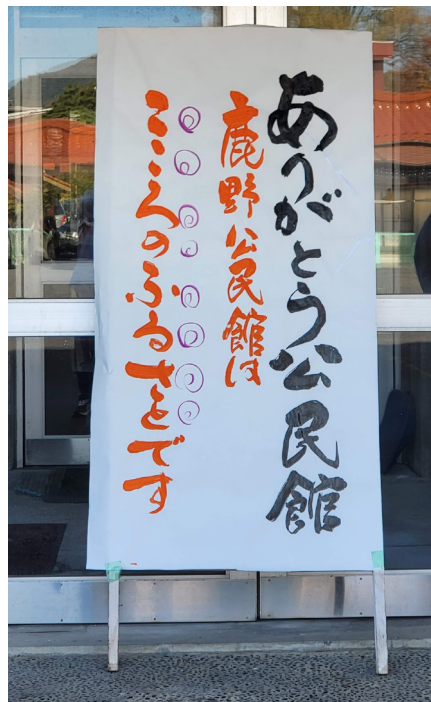 ありがとう公民館
鹿野公民館は
こころのふるさとです